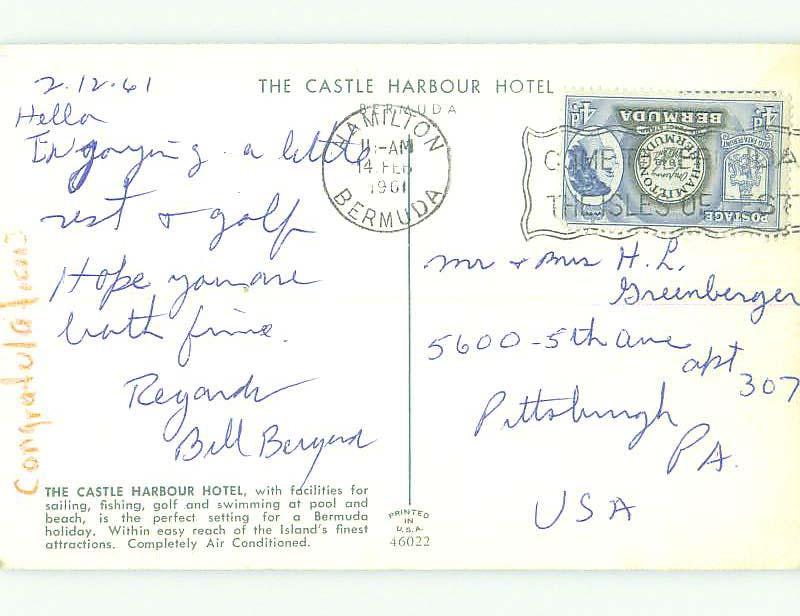 2.12.61
THE CASTLE HARBOUR HOTEL
BERMUDA
Hello
Enjoying a little
rest & golf
Hope you are
both fine.
Regards
Bill
Congratulations
HAMILTON
11-AM
14 FEB
1961
BERMUDA
COME TO
THE ISLES OF REST
4d 4d
BERMUDA
HAMILTON
BERMUDA
POSTAGE
Mr & Mrs H. L.
Greenberger
5600-5th Ave
apt
307
Pittsburgh
PA.
USA
THE CASTLE HARBOUR HOTEL, with facilities for
sailing, fishing, golf and swimming at pool and
beach, is the perfect setting for a Bermuda
holiday. Within easy reach of the Island's finest
attractions. Completely Air Conditioned.
PRINTED
IN
U.S.A.
46022